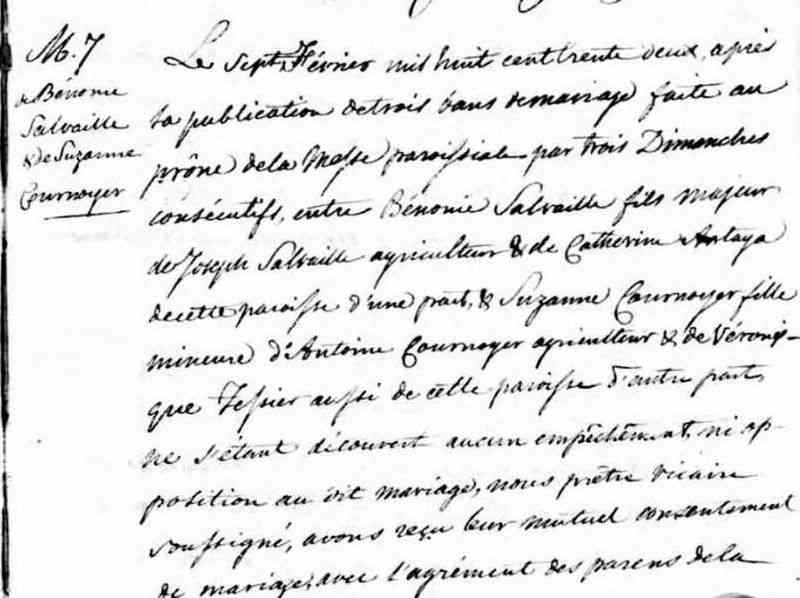 M. 7
de Bénonie
Salvaille
& de Suzanne
Cournoyer
Le sept Février mil huit cent trente deux, après
la publication de trois bans de mariage faite au
prône de la Messe paroissiale par trois Dimanches
consécutifs, entre Bénonie Salvaille fils majeur
de Joseph Salvaille agriculteur & de Catherine Antaya
de cette paroisse d'une part, & Suzanne Cournoyer fille
mineure d'Antoine Cournoyer agriculteur & de Véroni-
que Tessier aussi de cette paroisse d'autre part,
ne s'étant découvert aucun empêchement, ni op-
position au dit mariage, nous prêtre vicaire
soussigné, avons reçu leur mutuel consentement
de mariage, avec l'agrément des parens de la